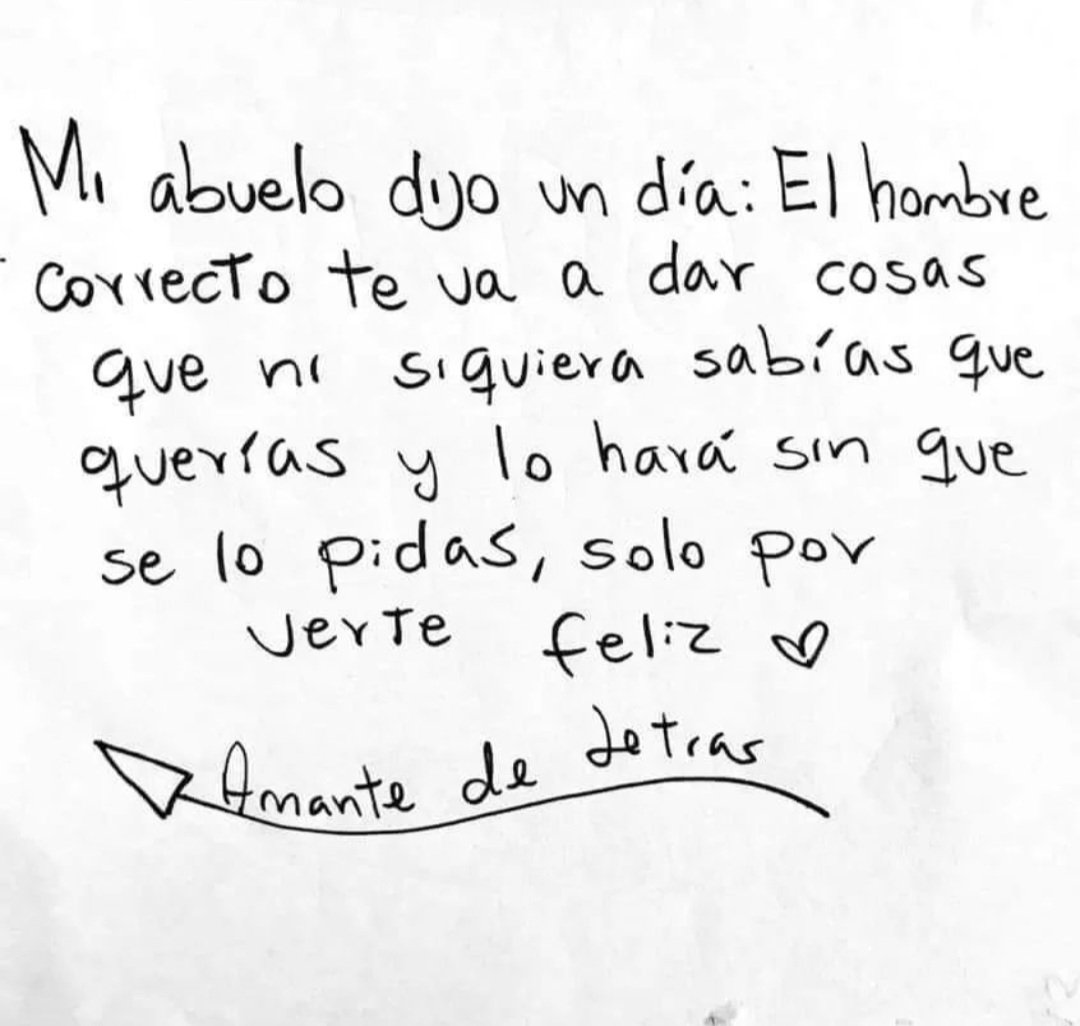 Mi abuelo dijo un día: El hombre
correcto te va a dar cosas
que ni siquiera sabías que
querías y lo hará sin que
se lo pidas, solo por
verte feliz ♡
Amante de Letras